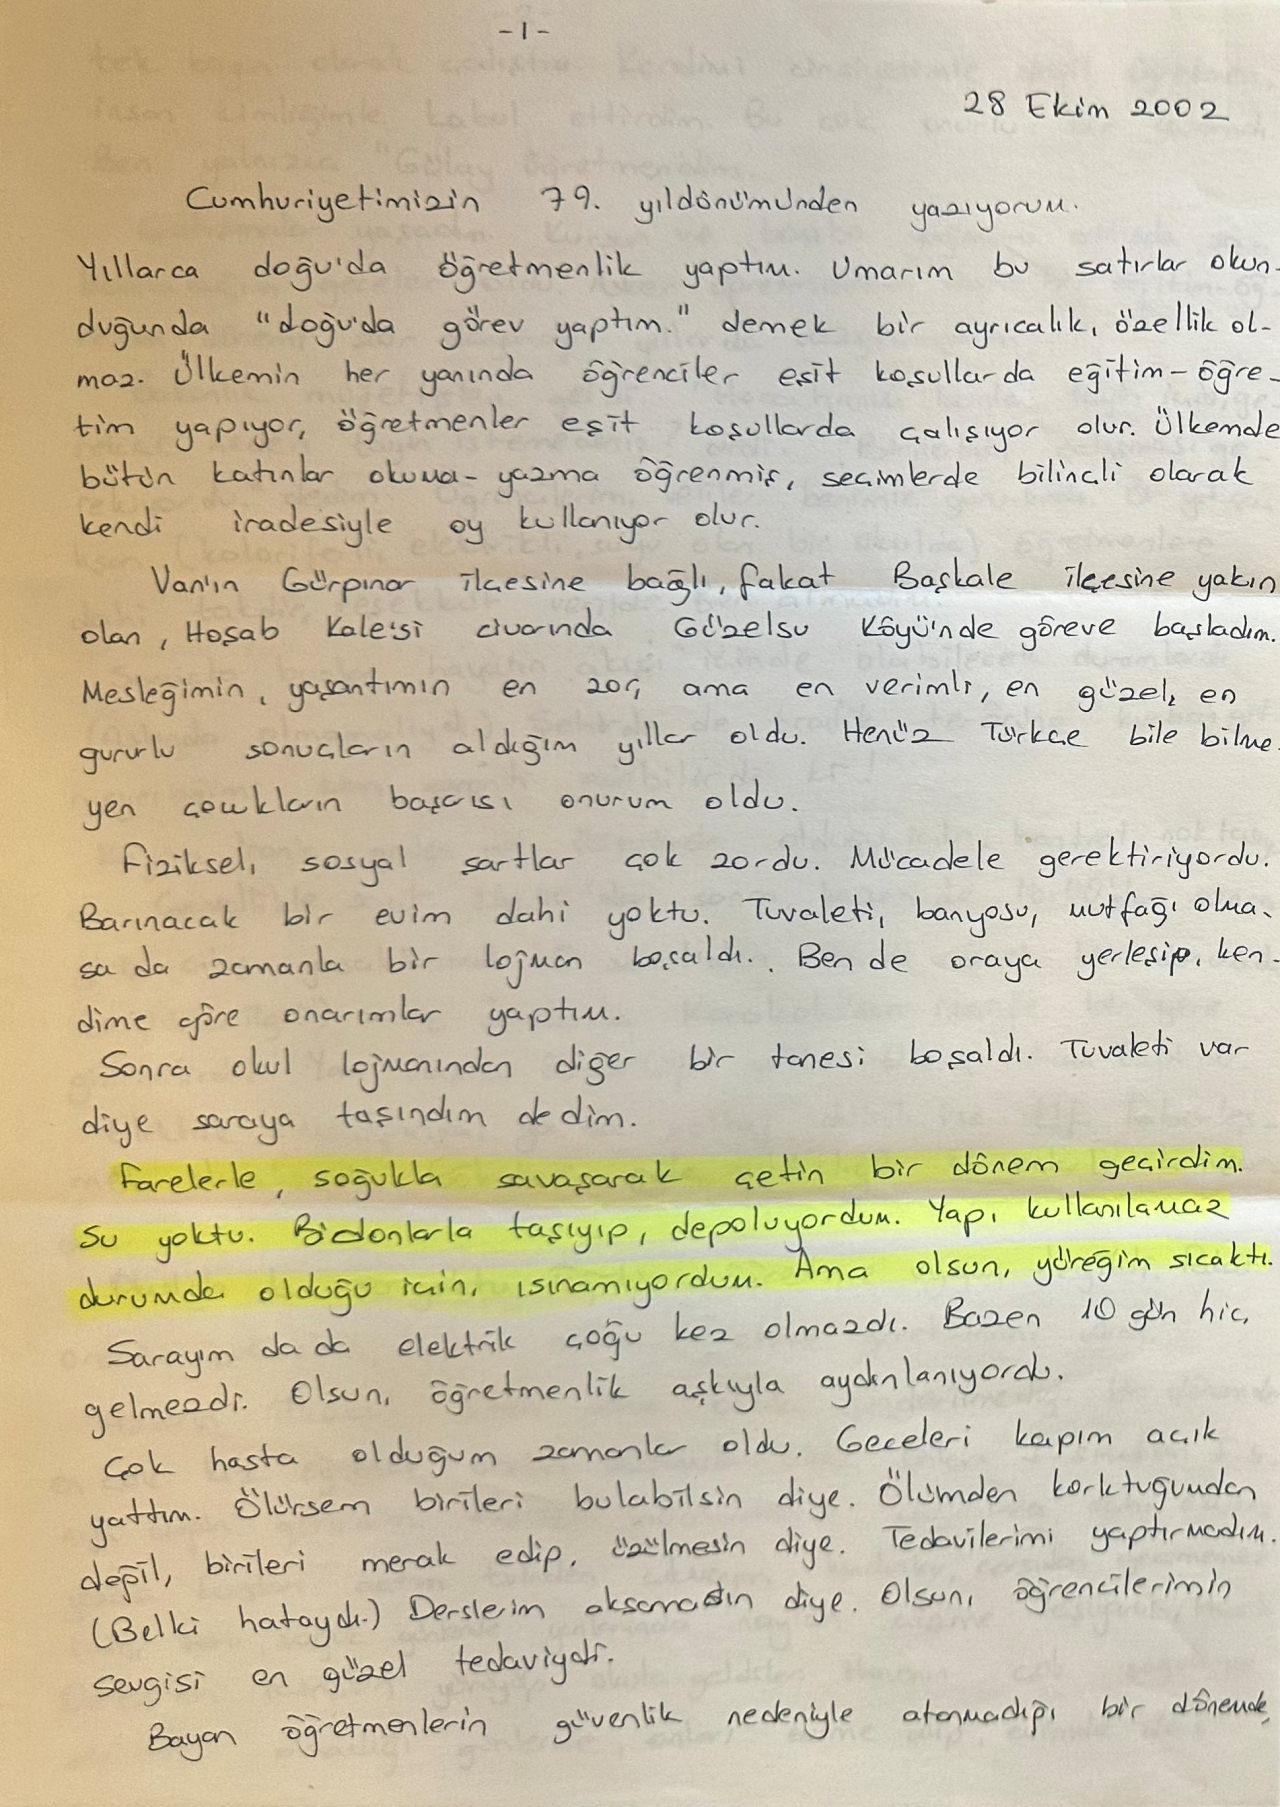 -1-
28 Ekim 2002
Cumhuriyetimizin 79. yıldönümünden yazıyorum.
Yıllarca doğu'da öğretmenlik yaptım. Umarım bu satırlar okun-
duğunda "doğu'da görev yaptım." demek bir ayrıcalık, özellik ol-
maz. Ülkemin her yanında öğrenciler eşit koşullarda eğitim-öğre-
tim yapıyor, öğretmenler eşit koşullarda çalışıyor olur. Ülkemde
bütün katınlar okuma-yazma öğrenmiş, seçimlerde bilinçli olarak
kendi iradesiyle oy kullanıyor olur.
Van'ın Gürpınar ilçesine bağlı, fakat Başkale ilçesine yakın
olan, Hoşab Kale'si civarında Güzelsu Köyü'nde göreve başladım.
Mesleğimin, yaşantımın en zor, ama en verimli, en güzel, en
gururlu sonuçların aldığım yıllar oldu. Henüz Türkçe bile bilme-
yen çocukların başarısı onurum oldu.
Fiziksel, sosyal şartlar çok zordu. Mücadele gerektiriyordu.
Barınacak bir evim dahi yoktu. Tuvaleti, banyosu, mutfağı olma-
sa da zamanla bir lojman boşaldı. Ben de oraya yerleşip, ken-
dime göre onarımlar yaptım.
Sonra okul lojmanından diğer bir tanesi boşaldı. Tuvaleti var
diye saraya taşındım dedim.
Farelerle, soğukla savaşarak çetin bir dönem geçirdim.
Su yoktu. Bidonlarla taşıyıp, depoluyordum. Yapı kullanılamaz
durumda olduğu için, ısınamıyordum. Ama olsun, yüreğim sıcaktı.
Sarayım da da elektrik çoğu kez olmazdı. Bazen 10 gün hiç,
gelmezdi. Olsun, öğretmenlik aşkıyla aydınlanıyordu.
Çok hasta olduğum zamanlar oldu. Geceleri kapım açık
yattım. Ölürsem birileri bulabilsin diye. Ölümden korktuğumdan
değil, birileri merak edip, üzülmesin diye. Tedavilerimi yaptırmadım.
(Belki hataydı.) Derslerim aksamasın diye. Olsun, öğrencilerimin
sevgisi en güzel tedaviydi.
Bayan öğretmenlerin güvenlik nedeniyle atanmadığı bir dönemde,